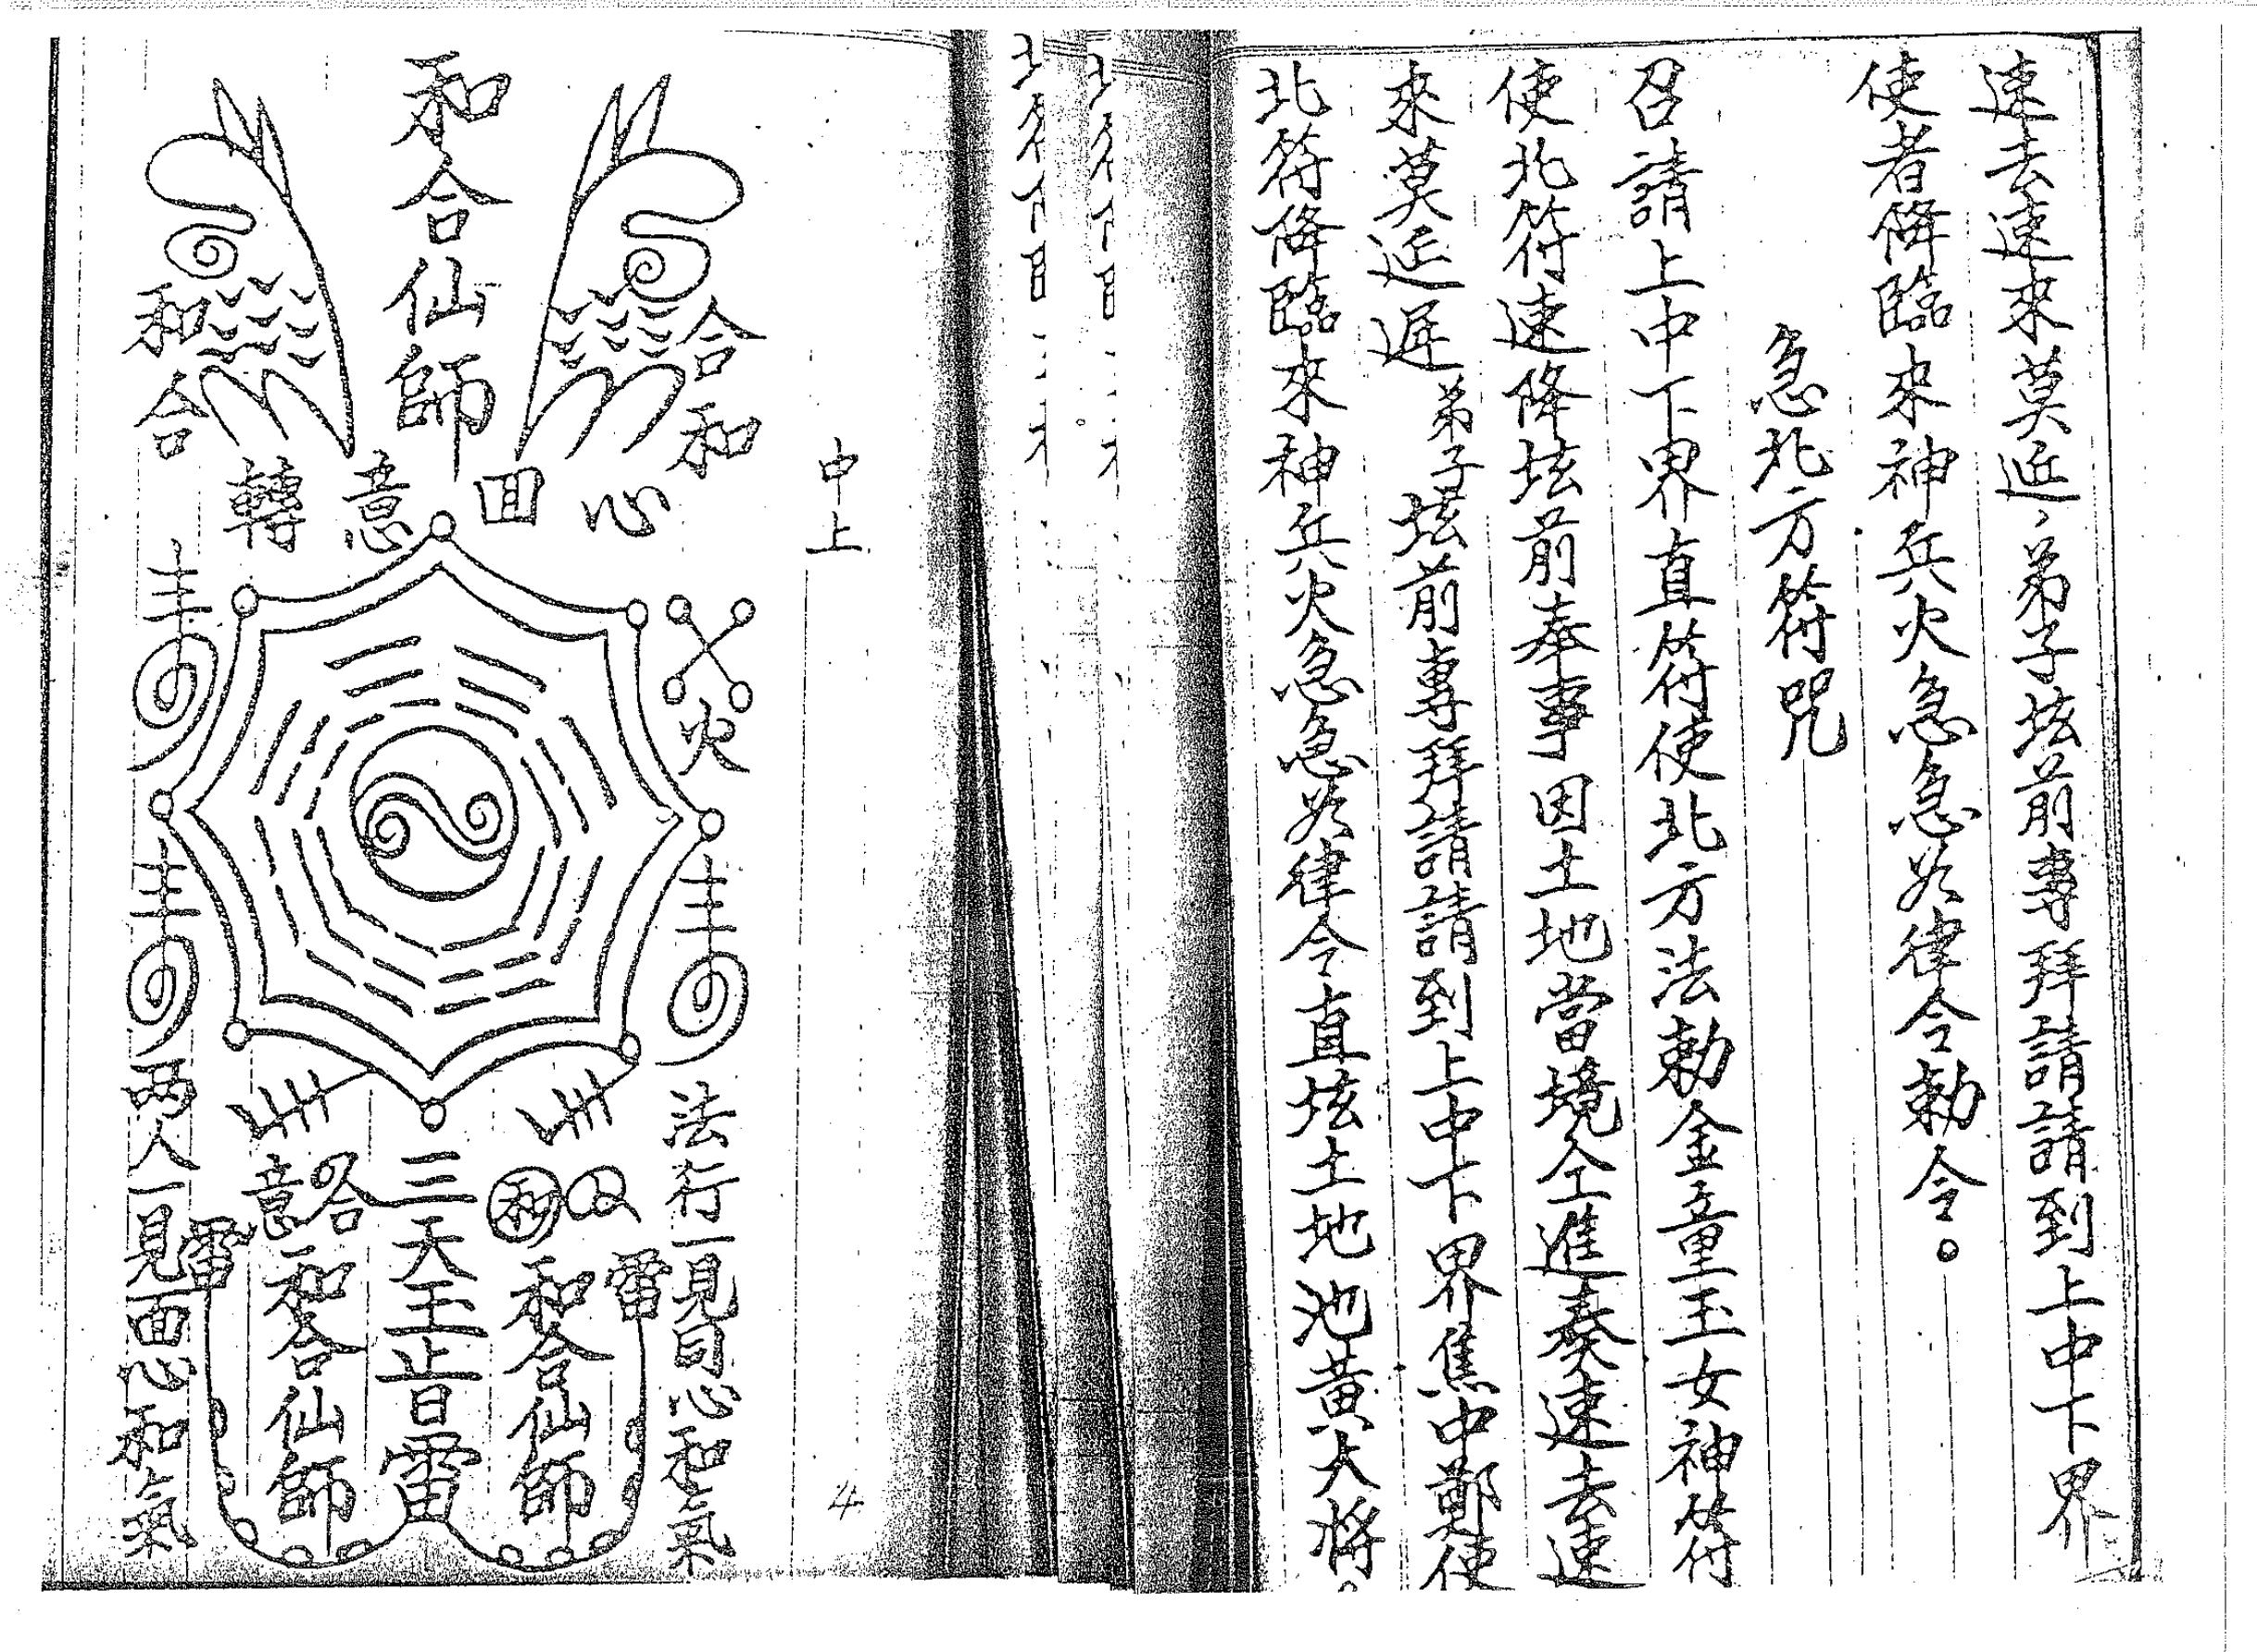 速去速來莫延、弟子坛前專拜請請到上中下界
使者降臨來神兵火急急如律令勅令。
急北方符咒
召請上中下界直符使北方法勅金童玉女神符
使北符速降坛前奉事因土地當境仝進奏速去速
來莫延遲弟子坛前專拜請請到上中下界焦中鄭使
北符降臨來神兵火急急如律令直坛土地池黃大将。
中上
4
和合仙師
合和
和合
心回意轉
火
法行一見同心和氣
两人一見面心和氣
三天王
雷
和合仙師
雷
合
意
和合仙師
雷